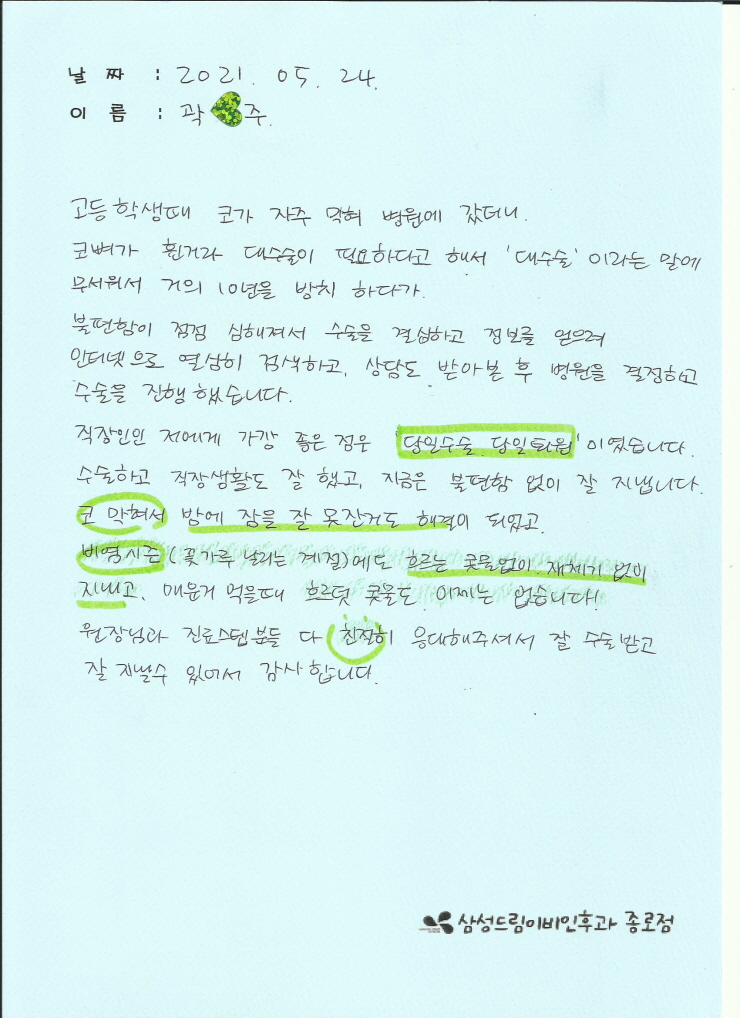 날 짜 : 2021. 05. 24.
이 름 : 곽 주.
고등학생때 코가 자주 막혀 병원에 갔더니.
코뼈가 휜거라 대수술이 필요하다고 해서 '대수술' 이라는 말에
무서워서 거의 10년을 방치 하다가.
불편함이 점점 심해져서 수술을 결심하고 정보를 얻으려
인터넷으로 열심히 검색하고, 상담도 받아본 후 병원을 결정하고
수술을 진행 했습니다.
직장인인 저에게 가장 좋은 점은 '당일수술. 당일퇴원' 이였습니다.
수술하고 직장생활도 잘 했고, 지금은 불편함 없이 잘 지냅니다.
코 막혀서 밤에 잠을 잘 못잔거도 해결이 되었고.
비염시즌 (꽃가루 날리는 계절)에도 흐르는 콧물없이. 재채기 없이
지내고, 매운거 먹을때 흐르던 콧물도 이제는 없습니다!
원장님과 진료스텝분들 다 친절히 응대해주셔서 잘 수술받고
잘 지낼수 있어서 감사합니다.
삼성드림이비인후과 종로점